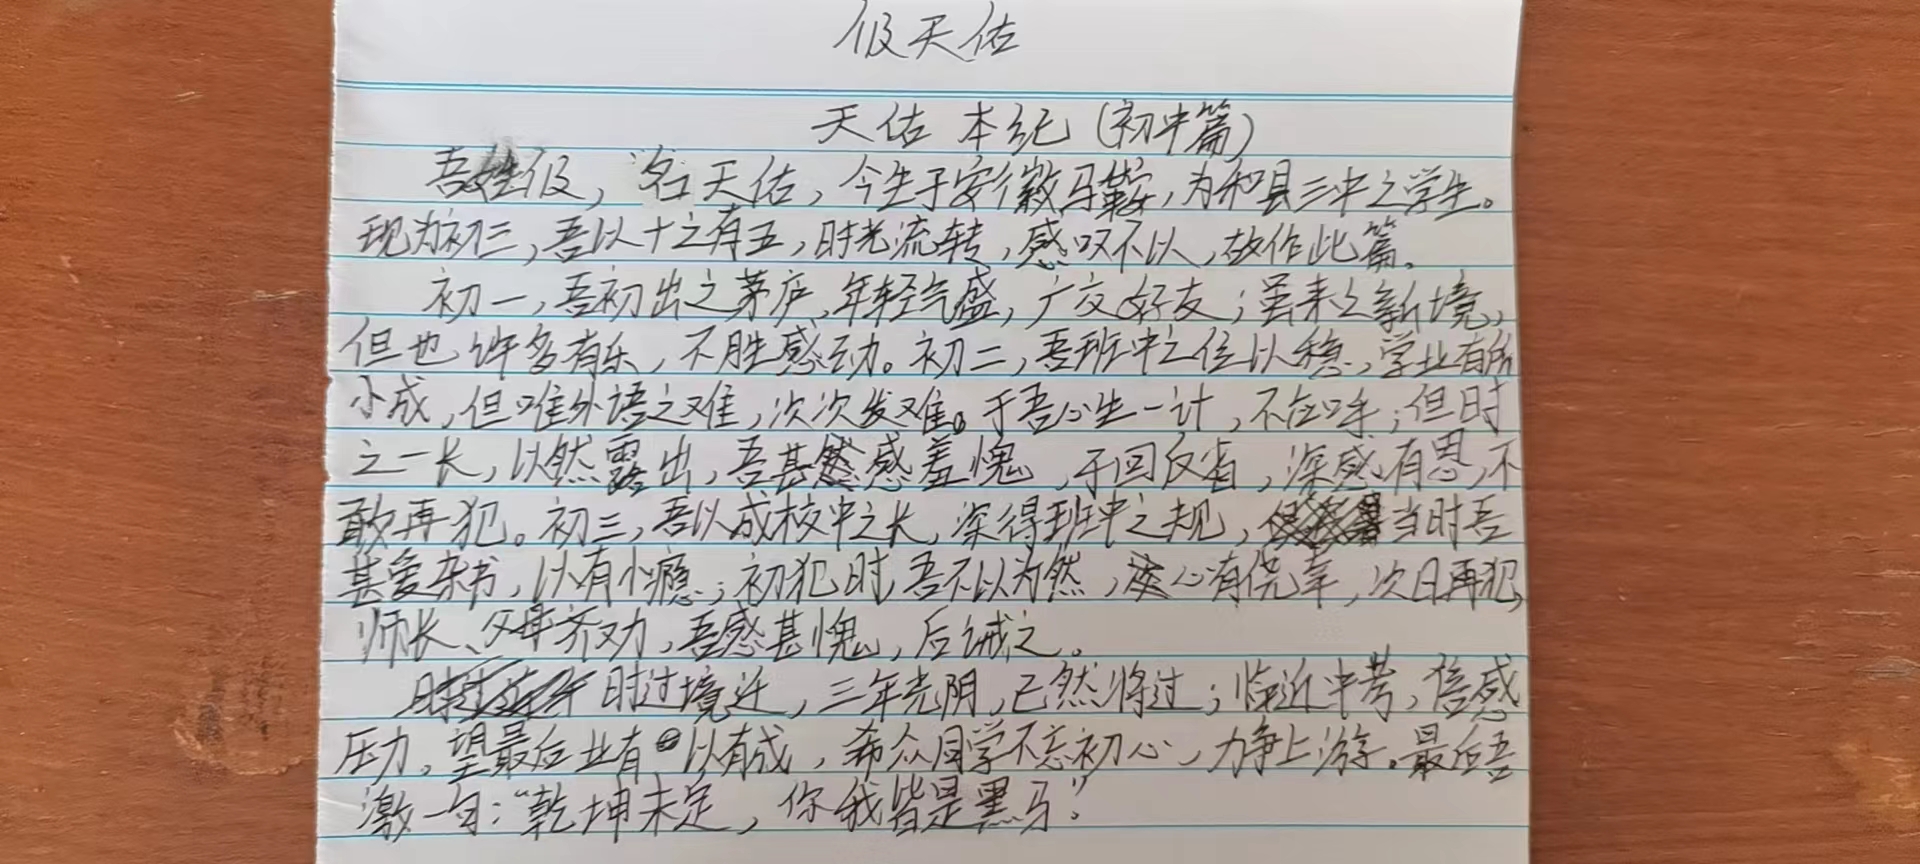 伋天佑
天佑 本纪(初中篇)
吾姓伋，名天佑，今生于安徽马鞍，为和县三中之学生。
现为初三，吾以十之有五，时光流转，感叹不以，故作此篇。
初一，吾初出之茅庐，年轻气盛，广交好友；虽来之新境，
但也许多有乐，不胜感动。初二，吾班中之位以稳，学业有所
小成，但唯外语之难，次次发难。于吾心生一计，不在呼；但时
之一长，以然露出，吾甚感羞愧，于回反省，深感有思，不
敢再犯。初三，吾以成校中之长，深得班中之规，当时吾
甚爱杂书，以有小瘾；初犯时，吾不以为然，心有侥幸，次日再犯，
师长、父母齐劝，吾感甚愧，后诫之。
时过境迁，三年光阴，已然将过；临近中考，倍感
压力，望最后业有以有成，希众同学不忘初心，力争上游。最后吾
激一句：“乾坤未定，你我皆是黑马。”